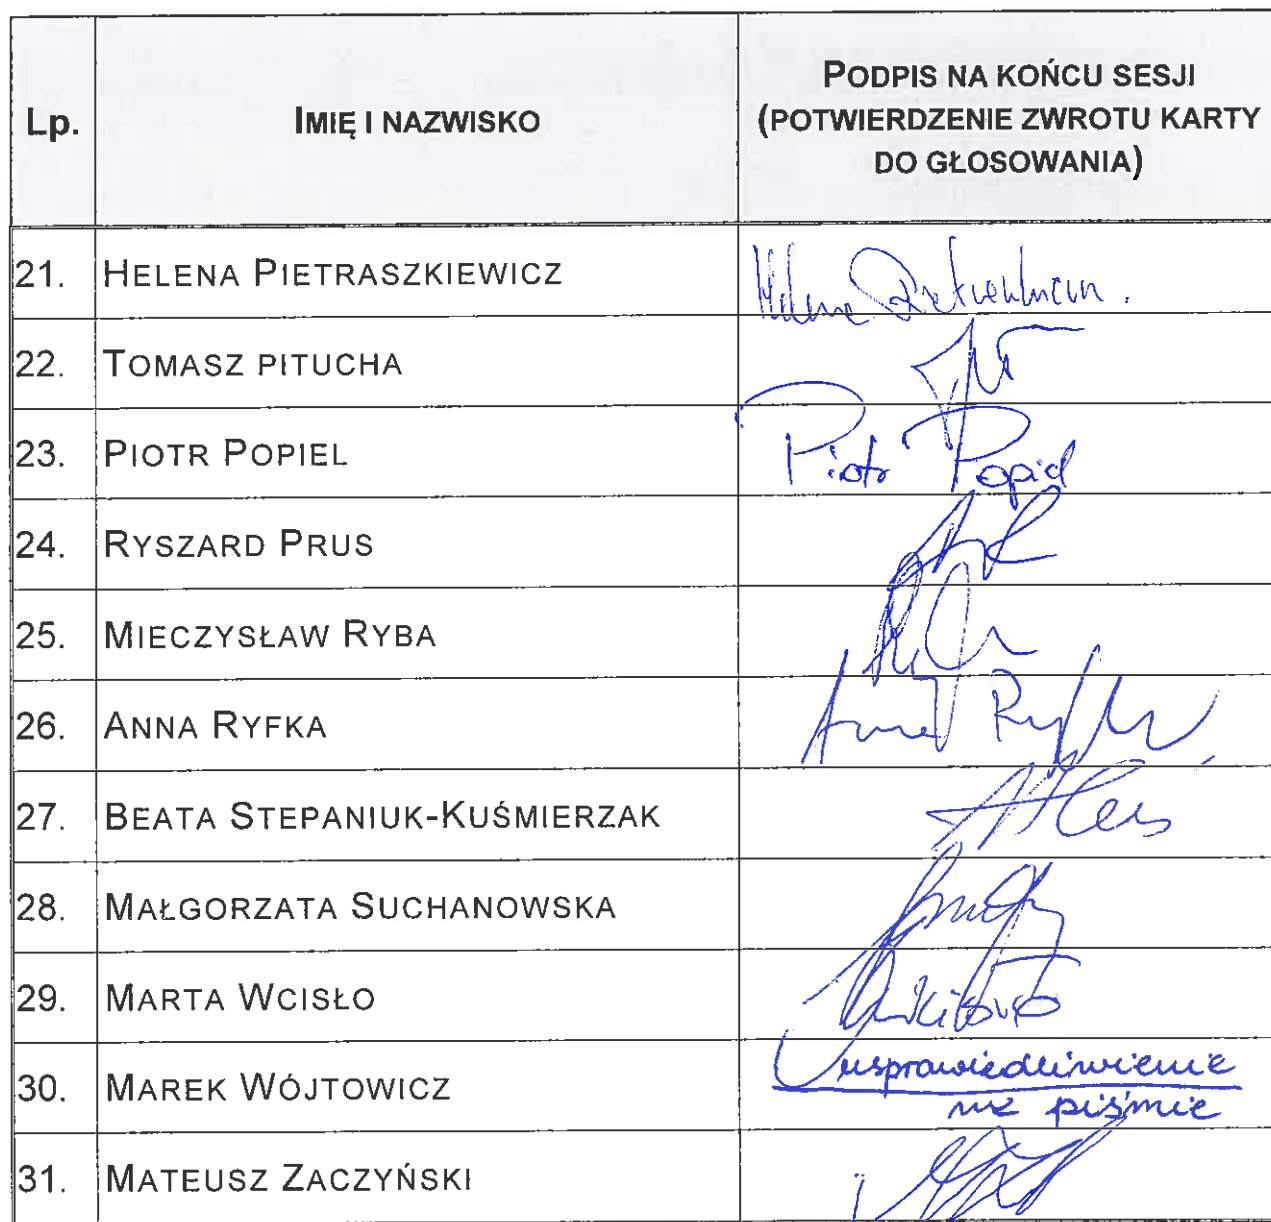 Lp. IMIĘ I NAZWISKO PODPIS NA KOŃCU SESJI
(POTWIERDZENIE ZWROTU KARTY
DO GŁOSOWANIA)
21. HELENA PIETRASZKIEWICZ Helena
22. TOMASZ PITUCHA
23. PIOTR POPIEL Piotr Popiel
24. RYSZARD PRUS
25. MIECZYSŁAW RYBA
26. ANNA RYFKA Anna
27. BEATA STEPANIUK-KUŚMIERZAK
28. MAŁGORZATA SUCHANOWSKA
29. MARTA WCISŁO
30. MAREK WÓJTOWICZ usprawiedliwienie
na piśmie
31. MATEUSZ ZACZYŃSKI